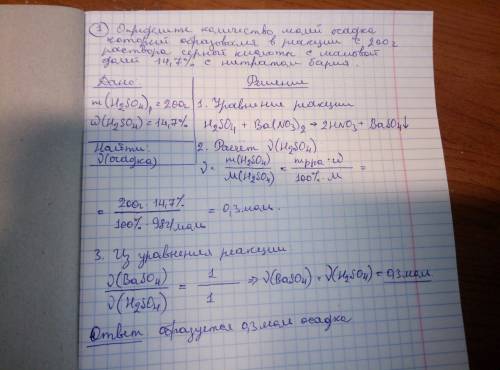 ① Определите количество молей осадка
который образовался в реакции с 200г
раствора серной кислоты с массовой
долей 14,7% с нитратом бария.
Дано:
m(H₂SO₄)₁ = 200г
ω(H₂SO₄) = 14,7%
Найти:
ν(осадка)
Решение
1. Уравнение реакции
H₂SO₄ + Ba(NO₃)₂ → 2HNO₃ + BaSO₄↓
2. Расчет ν(H₂SO₄)
ν = m(H₂SO₄) / M(H₂SO₄) = mр-ра · ω / 100% · M =
= 200г · 14,7% / 100% · 98г/моль = 0,3 мол.
3. Из уравнения реакции
ν(BaSO₄) / ν(H₂SO₄) = 1 / 1 ⇒ ν(BaSO₄) = ν(H₂SO₄) = 0,3 мол
Ответ образуется 0,3 мол осадка